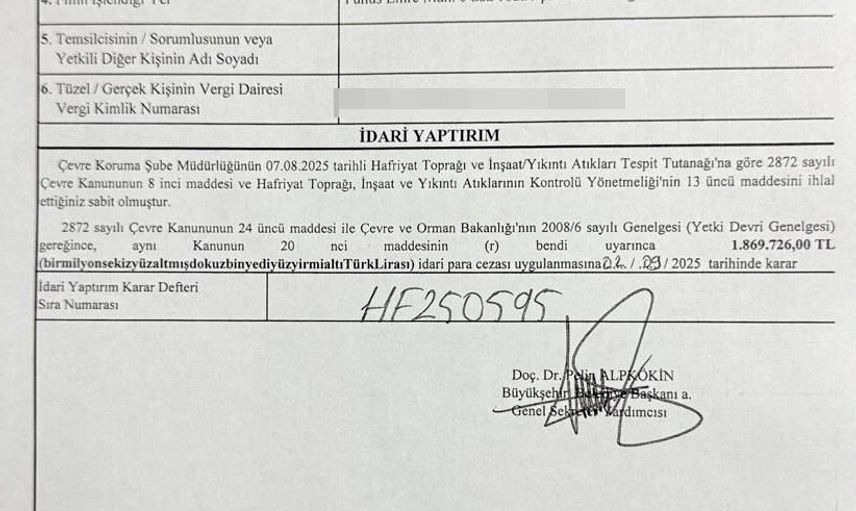 5. Temsilcisinin / Sorumlusunun veya
Yetkili Diğer Kişinin Adı Soyadı
6. Tüzel / Gerçek Kişinin Vergi Dairesi
Vergi Kimlik Numarası
İDARİ YAPTIRIM
Çevre Koruma Şube Müdürlüğünün 07.08.2025 tarihli Hafriyat Toprağı ve İnşaat/Yıkıntı Atıkları Tespit Tutanağı'na göre 2872 sayılı
Çevre Kanununun 8 inci maddesi ve Hafriyat Toprağı, İnşaat ve Yıkıntı Atıklarının Kontrolü Yönetmeliği'nin 13 üncü maddesini ihlal
ettiğiniz sabit olmuştur.
2872 sayılı Çevre Kanununun 24 üncü maddesi ile Çevre ve Orman Bakanlığı'nın 2008/6 sayılı Genelgesi (Yetki Devri Genelgesi)
gereğince, aynı Kanunun 20 nci maddesinin (r) bendi uyarınca 1.869.726,00 TL
(birmilyonsekizyüzaltmışdokuzbinyediyüzyirmialtıTürkLirası) idari para cezası uygulanmasına 02./.09/2025 tarihinde karar
İdari Yaptırım Karar Defteri
Sıra Numarası
HF250595
Doç. Dr. Pelin ALPKÖKİN
Büyükşehir Belediye Başkanı a.
Genel Sekreter Yardımcısı